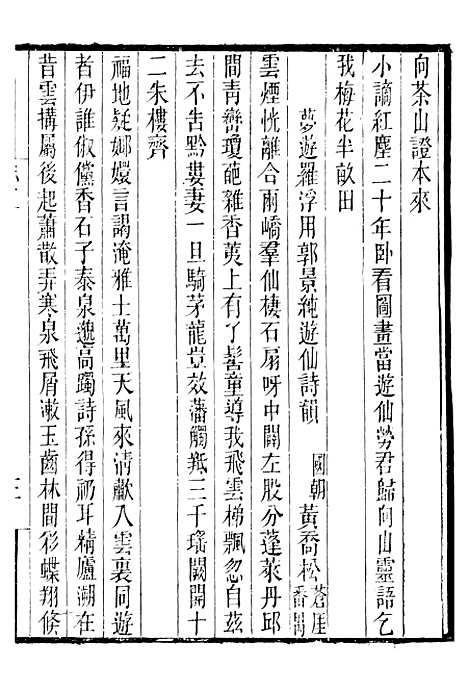 向茶山證本來
小謫紅塵二十年卧看圖畫當遊仙勞君歸向山靈語乞
我梅花半畝田
夢遊羅浮用郭景純遊仙詩韻 國朝黃喬松蒼厓番禺
雲煙恍離合雨嶠羣仙棲石扇呀中闢左股分蓬萊丹邱
間青巒瓊葩雜杳荑上有了髻童導我飛雲梯飄忽自茲
去不告黔婁妻一旦騎茅龍豈效藩觸羝三千瑤闕開十
二朱樓齊
福地疑嫏嬛言謁淹雅士萬里天風來清歗入雲裏同遊
者伊誰俶儻香石子泰泉邈高躅詩孫得礽耳精廬溯在
昔雲搆屬後起蕭散弄寒泉飛屑漱玉齒林間彩蝶翔倏
三